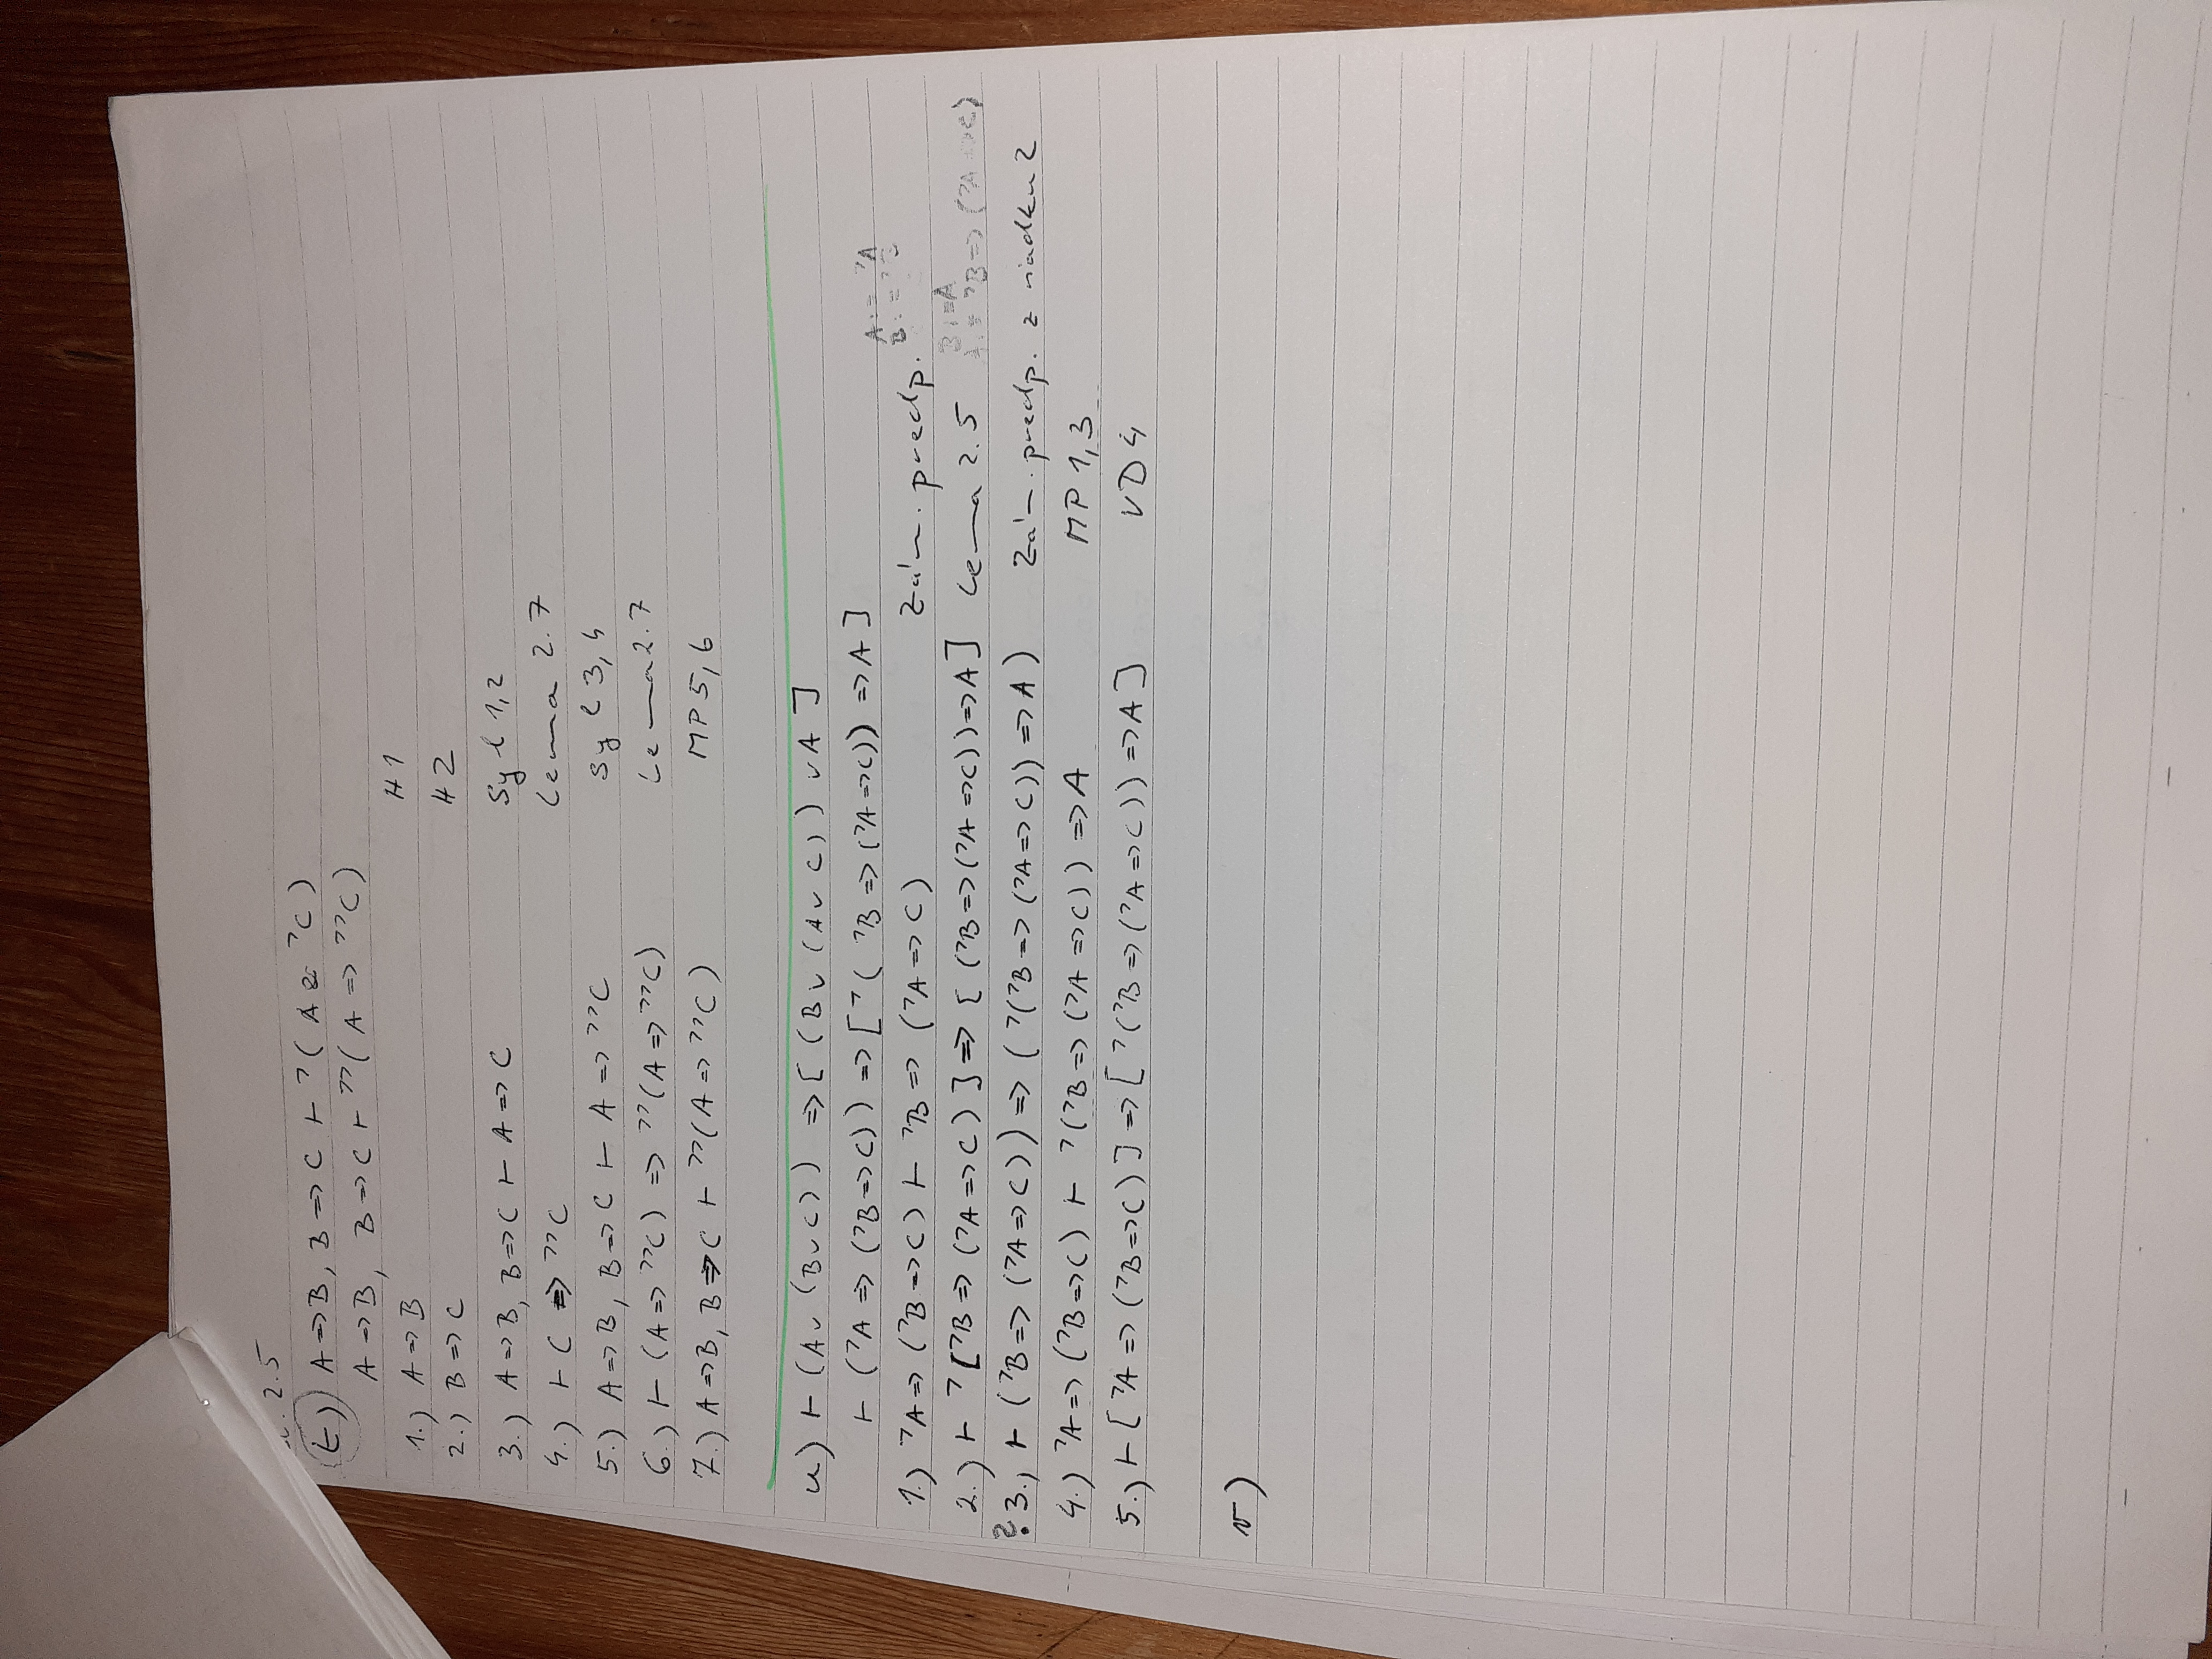 2.5
t) A=>B, B=>C ⊢ ¬(A & ¬C)
A=>B, B=>C ⊢ ¬¬(A=>¬¬C)
1.) A=>B H1
2.) B=>C H2
3.) A=>B, B=>C ⊢ A=>C Syl 1,2
4.) ⊢ C => ¬¬C Lema 2.7
5.) A=>B, B=>C ⊢ A=>¬¬C Syl 3,4
6.) ⊢ (A=>¬¬C) => ¬¬(A=>¬¬C) Lema 2.7
7.) A=>B, B=>C ⊢ ¬¬(A=>¬¬C) MP 5,6
u) ⊢ (A∨(B∨C)) => [(B∨(A∨C))∨A]
⊢ (¬A=>(¬B=>C)) => [¬(¬B=>(¬A=>C)) => A]
1.) ¬A=>(¬B=>C) ⊢ ¬B=>(¬A=>C) Zám. predp. A:=¬A B:=¬B
2.) ⊢ ¬[¬B=>(¬A=>C)] => [(¬B=>(¬A=>C))=>A] Lema 2.5 B:=A A:=¬B=>(¬A=>C)
?3.) ⊢ (¬B=>(¬A=>C)) => (¬(¬B=>(¬A=>C))=>A) Zám. predp. z riadku 2
4.) ¬A=>(¬B=>C) ⊢ ¬(¬B=>(¬A=>C)) => A MP 1,3
5.) ⊢ [¬A=>(¬B=>C)] => [¬(¬B=>(¬A=>C))=>A] VD 4
v)